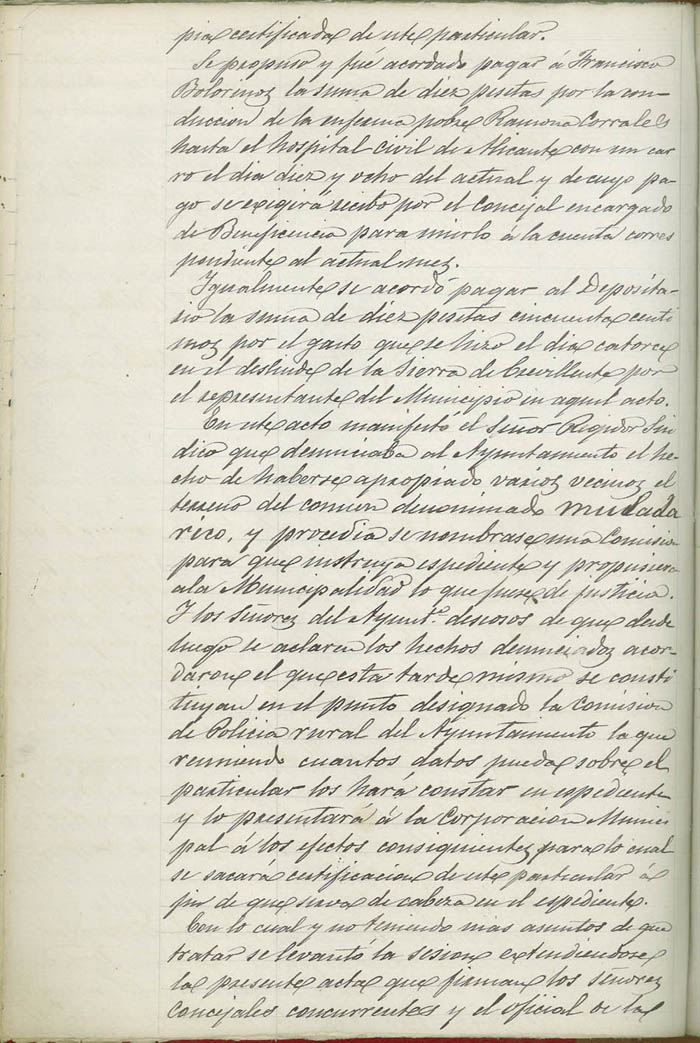 pia certificada de este particular.
Se propuso y fué acordado pagar á Francisco
Bolorinos la suma de diez pesetas por la con-
duccion de la enferma pobre Ramona Corrales
hasta el hospital civil de Alicante con un car
ro el dia diez y ocho del actual y de cuyo pa-
go se exigirá recibo por el Concejal encargado
de Beneficencia para unirlo á la cuenta corres
pondiente al actual mes.
Igualmente se acordó pagar al Deposita-
rio la suma de diez pesetas cincuenta centi
mos por el gasto que se hizo el dia catorce
en el deslinde de la Sierra de Crevillente por
el representante del Municipio en aquel acto.
En este acto manifestó el Señor Regidor Sin
dico que denunciaba al Ayuntamiento el he-
cho de haberse apropiado varios vecinos el
terreno del comun denominado muladar
rico, y procedia se nombrase una Comision
para que instruya espediente y propusiera
a la Municipalidad lo que fuese de justicia.
Y los Señores del Ayunt.to deseosos de que desde
luego se aclaren los hechos denunciados acor-
daron el que esta tarde mismo se consti
tuyan en el punto designado la Comision
de Policia rural del Ayuntamiento la que
reuniendo cuantos datos pueda sobre el
particular los hará constar en espediente
y lo presentará á la Corporacion Munici
pal á los efectos consiguientes para lo cual
se sacará certificacion de este particular á
fin de que sirva de cabeza en el espediente.
Con lo cual y no teniendo mas asuntos de que
tratar se levantó la sesion extendiendose
la presente acta que firman los Señores
Concejales concurrentes y el oficial de la